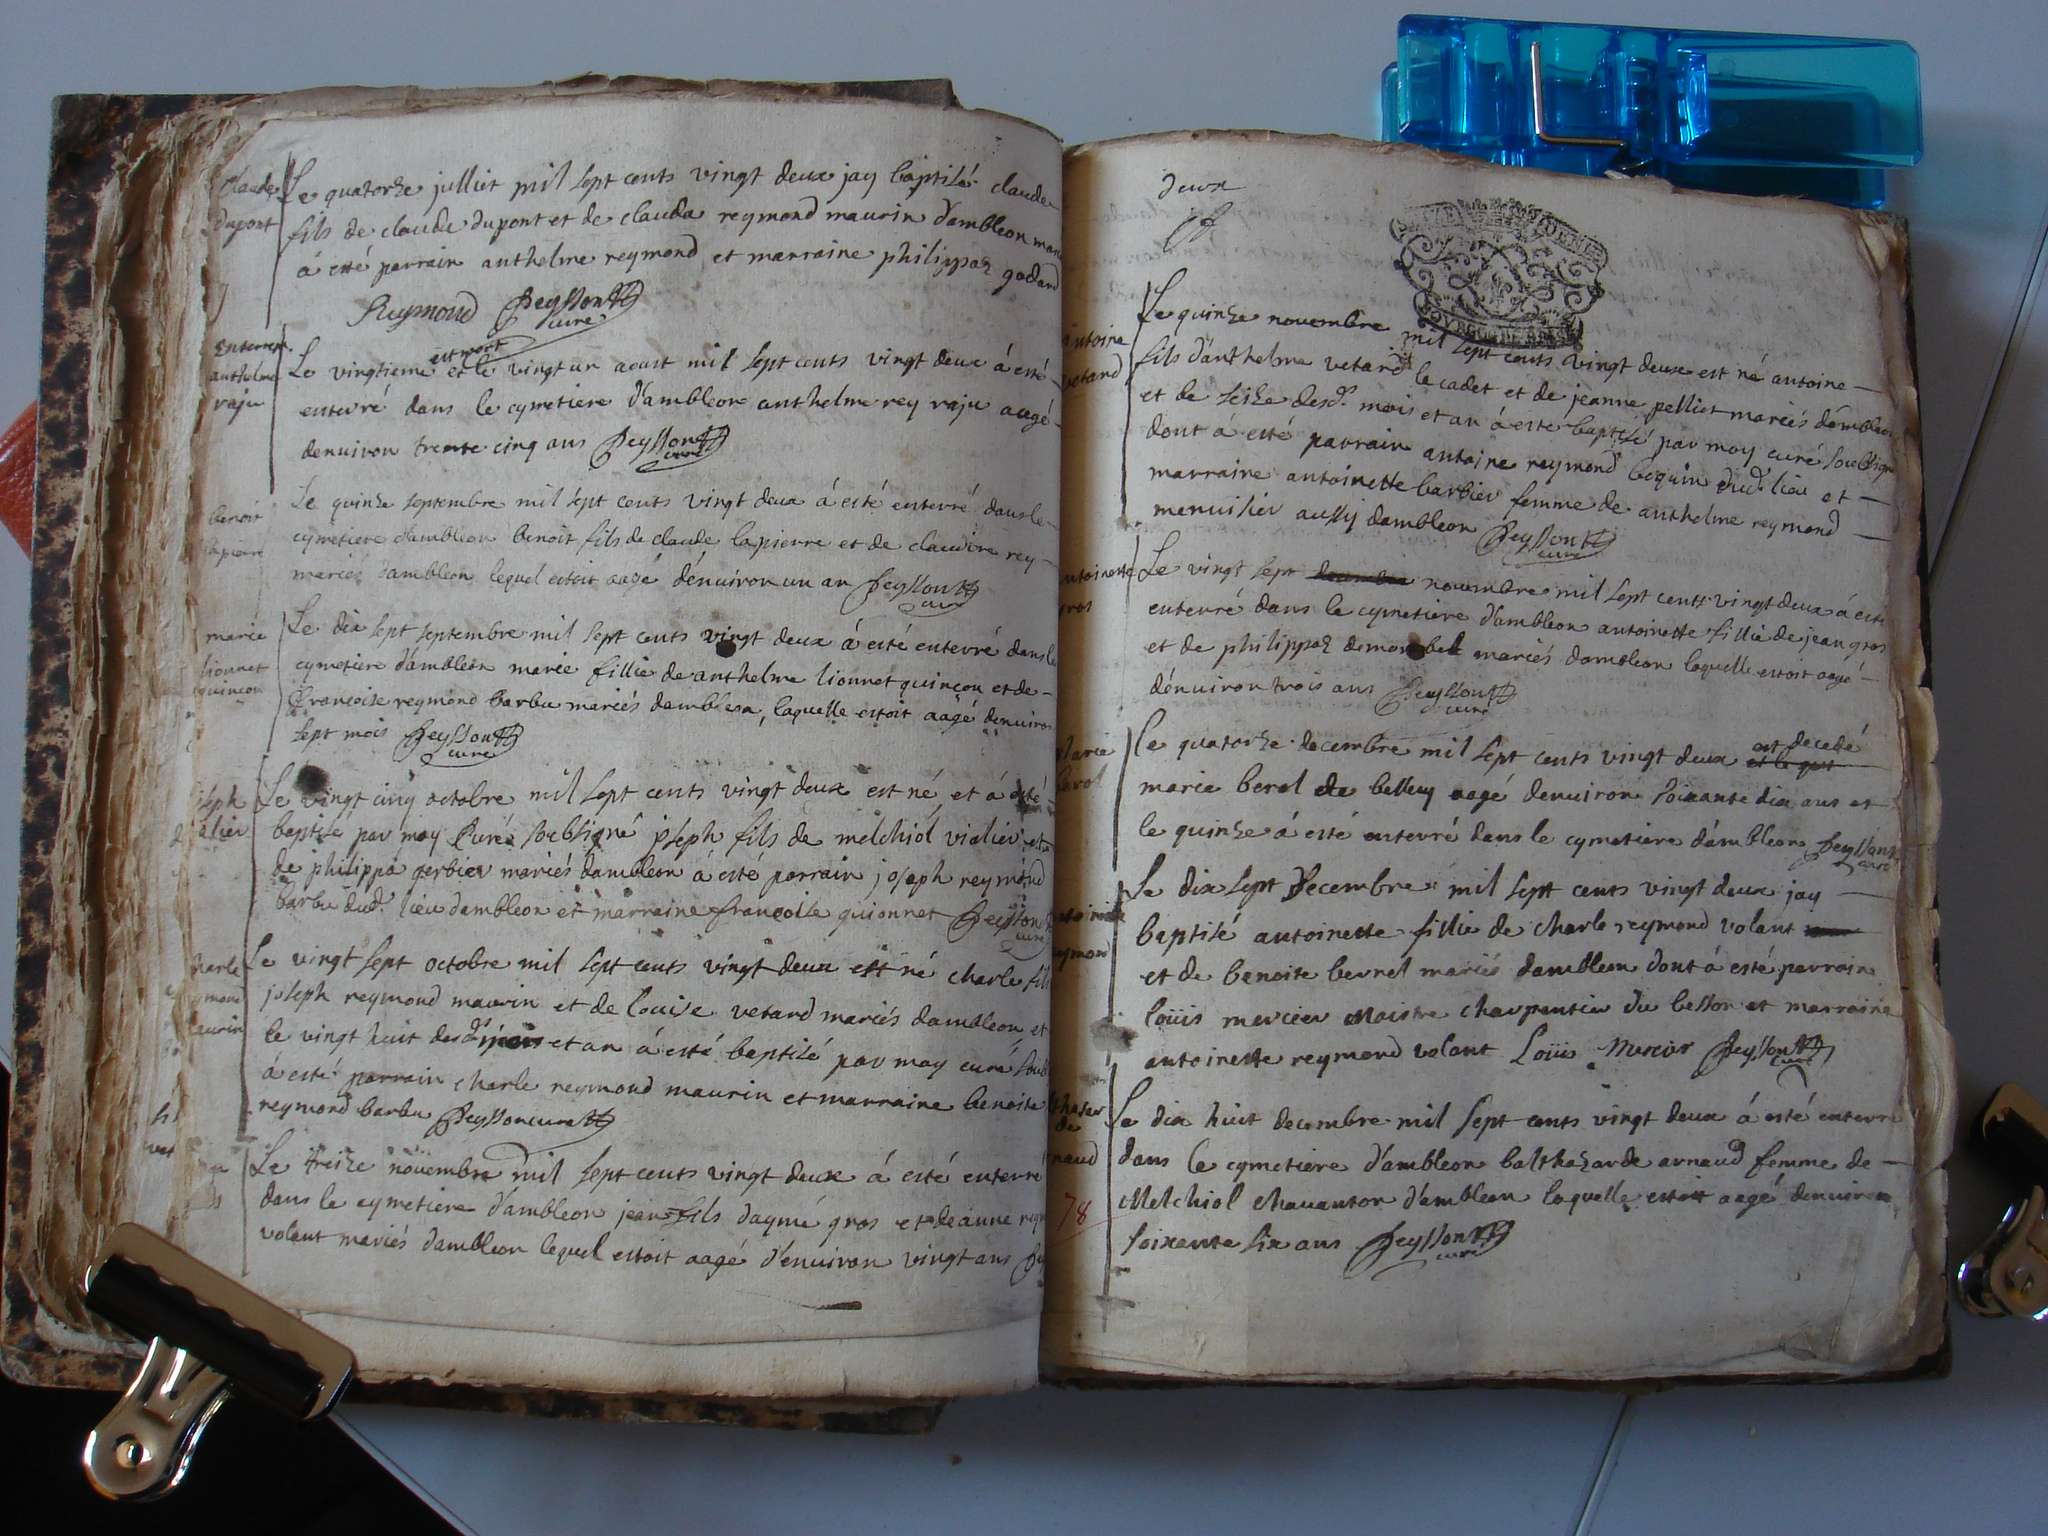 Claude
Dupont
Le quatorze julliet mil sept cents vingt deux jay baptisé claude
fils de claude dupont et de clauda reymond maurin d'ambleon
à esté parrain anthelme reymond et marraine philippaz godard
Reymond Peysson
curé
Enterrem.
anthelme
raju
est mort
Le vingtieme et le vingt un aoust mil sept cents vingt deux à esté
enterré dans le cymetiere d'ambleon anthelme rey raju aagé
denuiron trente cinq ans Peysson
curé
benoit
lapierre
Le quinze septembre mil sept cents vingt deux à esté enterré dans le
cymetiere d'ambleon benoit fils de claude lapierre et de claudine rey
mariés d'ambleon lequel estoit aagé dénuiron un an Peysson
curé
marie
lionnet
quinçon
Le dix sept septembre mil sept cents vingt deux à esté enterré dans le
cymetiere d'ambleon marie fillie de anthelme lionnet quinçon et de
françoise reymond barbu mariés dambleon, laquelle estoit aagé denuiron
sept mois Peysson
curé
Le vingt cinq octobre mil sept cents vingt deux est né et à esté
baptisé par moy Curé soubsigné joseph fils de melchiol vialier et
de philippa gerbier mariés dambleon à esté parrain joseph reymond
barbu dud. lieu dambleon et marraine françoise quionnet Peysson
curé
Le vingt sept octobre mil sept cents vingt deux est né charle fils
joseph reymond maurin et de louise vetard mariés dambleon et
le vingt huit desd. mois et an à esté baptisé par moy curé
à esté parrain charle reymond maurin et marraine benoite
reymond barbu Peysson curé
Le treize noüembre mil sept cents vingt deux à esté enterré
dans le cymetiere d'ambleon jean fils daymé gros et de anne
volant mariés dambleon lequel estoit aagé d'enuiron vingt ans
deux
antoine
vetard
Le quinze novembre mil sept cents vingt deux est né antoine
fils d'anthelme vetard le cadet et de jeanne pelliet mariés dambleon
et le seize desd. mois et an à esté baptisé par moy curé soubsigné
dont à esté parrain antoine reymond bequin dud. lieu et
marraine antoinette barbier femme de anthelme reymond
menuisier aussy dambleon Peysson
curé
antoinette
gros
Le vingt sept decembre novembre mil sept cents vingt deux à esté
enterré dans le cymetiere d'ambleon antoinette fillie de jean gros
et de philippaz demorabel mariés dambleon laquelle estoit aagé
dénuiron trois ans Peysson
curé
Marie
berol
Le quatorze decembre mil sept cents vingt deux est decedé
marie berol de belley aagé denuiron soixante dix ans et
le quinze à esté enterré dans le cymetiere d'ambleon Peysson
curé
Le dix sept decembre mil sept cents vingt deux jay
baptisé antoinette fillie de charle reymond volant
et de benoite bernel mariés dambleon dont à esté parrain
loüis mercier Maistre charpentier du besson et marraine
antoinette reymond volant Loüis Mercier Peysson
curé
Le dix huit decembre mil sept cents vingt deux à esté enterré
dans le cymetiere d'ambleon balthazarde arnaud femme de
Melchiol Chauanton d'ambleon laquelle estoit aagé denuiron
soixante six ans Peysson
curé
78